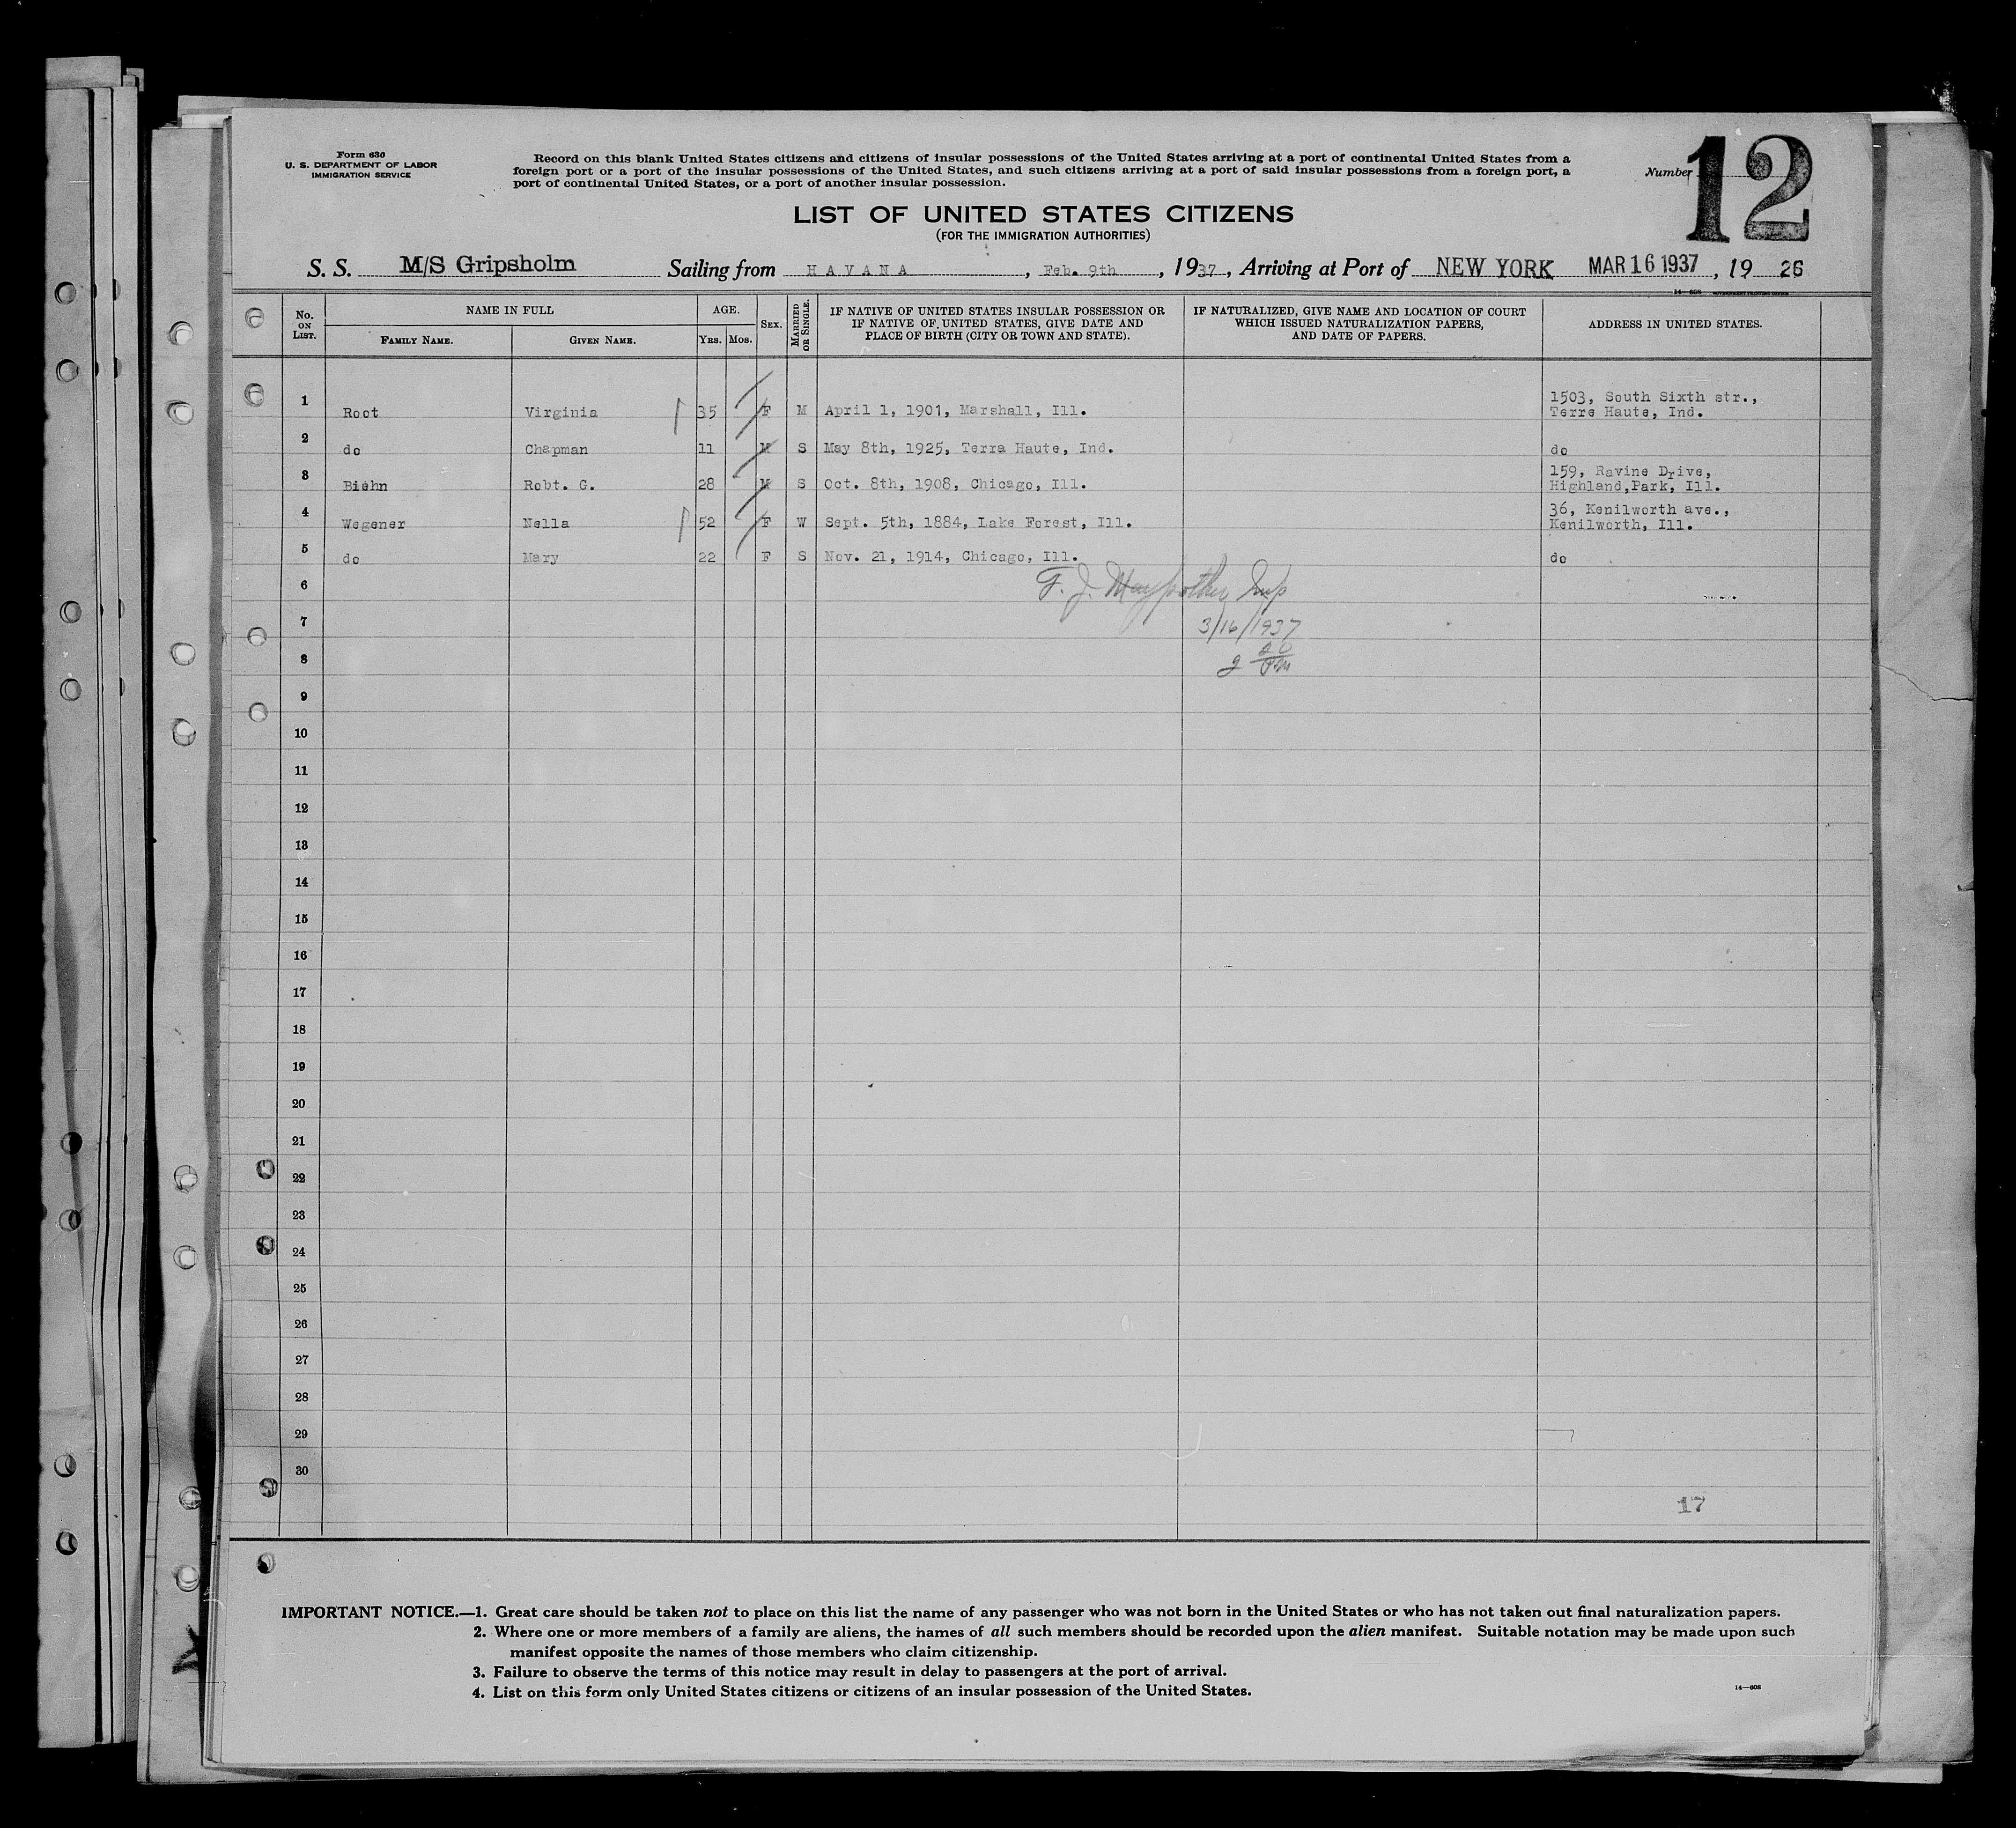 Form 630
U. S. DEPARTMENT OF LABOR
IMMIGRATION SERVICE
Record on this blank United States citizens and citizens of insular possessions of the United States arriving at a port of continental United States from a
foreign port or a port of the insular possessions of the United States, and such citizens arriving at a port of said insular possessions from a foreign port, a
port of continental United States, or a port of another insular possession.
Number 12
LIST OF UNITED STATES CITIZENS
(FOR THE IMMIGRATION AUTHORITIES)
S. S. M/S Gripsholm Sailing from HAVANA, Feb. 9th, 1937, Arriving at Port of NEW YORK MAR 16 1937, 19 26
14—608 GOVERNMENT PRINTING OFFICE
No. ON LIST. NAME IN FULL AGE. SEX. MARRIED OR SINGLE. IF NATIVE OF UNITED STATES INSULAR POSSESSION OR IF NATIVE OF UNITED STATES, GIVE DATE AND PLACE OF BIRTH (CITY OR TOWN AND STATE). IF NATURALIZED, GIVE NAME AND LOCATION OF COURT WHICH ISSUED NATURALIZATION PAPERS, AND DATE OF PAPERS. ADDRESS IN UNITED STATES.
FAMILY NAME. GIVEN NAME. YRS. MOS.
1 Root Virginia 35 F M April 1, 1901, Marshall, Ill. 1503, South Sixth str., Terre Haute, Ind.
2 do Chapman 11 M S May 8th, 1925, Terra Haute, Ind. do
3 Biehn Robt. G. 28 M S Oct. 8th, 1908, Chicago, Ill. 159, Ravine Drive, Highland,Park, Ill.
4 Wegener Nella 52 F W Sept. 5th, 1884, Lake Forest, Ill. 36, Kenilworth ave., Kenilworth, Ill.
5 do Mary 22 F S Nov. 21, 1914, Chicago, Ill. do
6 F. J.
7 3/16/1937
8 2 20 PM
9
10
11
12
13
14
15
16
17
18
19
20
21
22
23
24
25
26
27
28
29
30
17
IMPORTANT NOTICE.—1. Great care should be taken not to place on this list the name of any passenger who was not born in the United States or who has not taken out final naturalization papers.
2. Where one or more members of a family are aliens, the names of all such members should be recorded upon the alien manifest. Suitable notation may be made upon such
manifest opposite the names of those members who claim citizenship.
3. Failure to observe the terms of this notice may result in delay to passengers at the port of arrival.
4. List on this form only United States citizens or citizens of an insular possession of the United States.
14—608